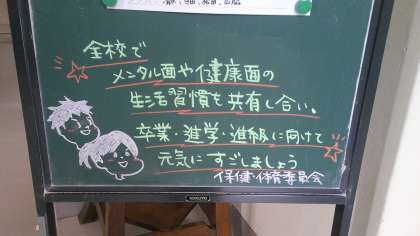 全校で
メンタル面や健康面の
生活習慣を共有し合い。
卒業・進学・進級に向けて
元気にすごしましょう
保健・体育委員会
KOKUYO